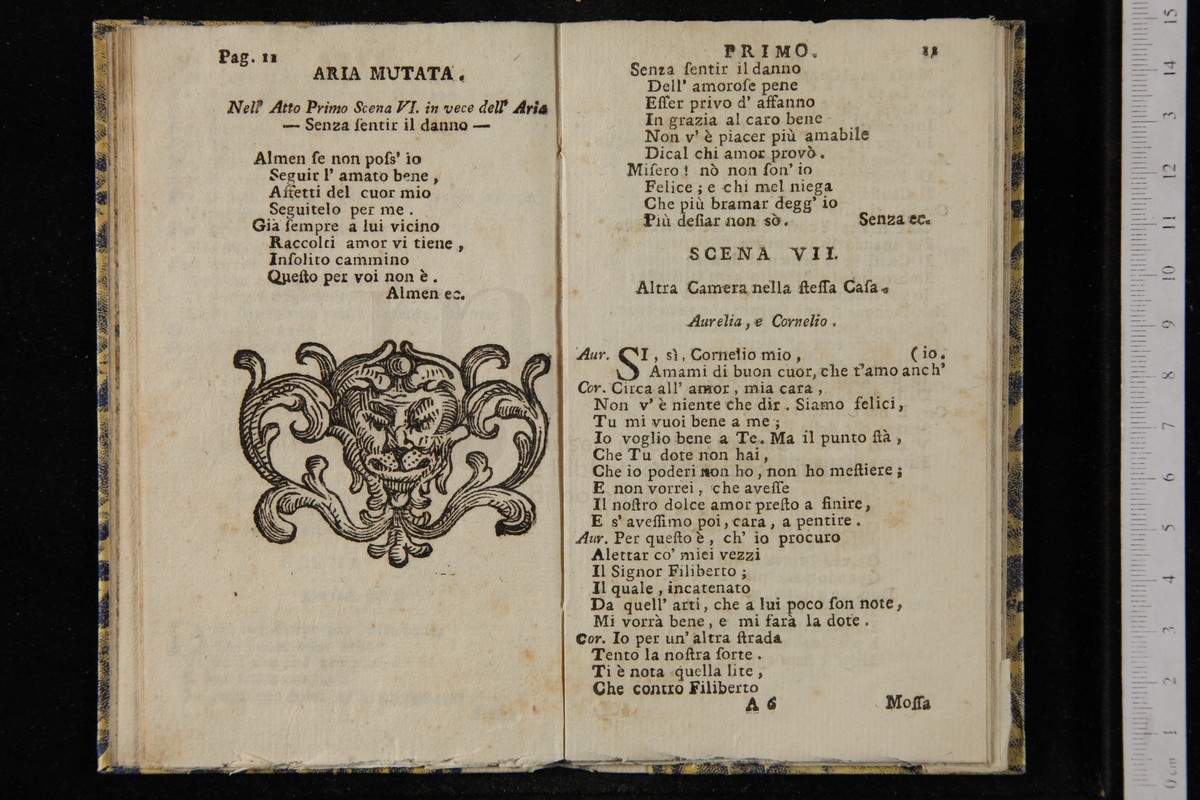 Pag. 11
ARIA MUTATA.
Nell' Atto Primo Scena VI. in vece dell' Aria
— Senza ſentir il danno —
Almen ſe non poſs' io
Seguir l' amato bene ,
Affetti del cuor mio
Seguitelo per me .
Già ſempre a lui vicino
Raccolti amor vi tiene ,
Inſolito cammino
Queſto per voi non è .
Almen ec.
PRIMO. 11
Senza ſentir il danno
Dell' amoroſe pene
Eſſer privo d' affanno
In grazia al caro bene
Non v' è piacer più amabile
Dical chi amor provò .
Miſero ! nò non ſon' io
Felice ; e chi mel niega
Che più bramar degg' io
Più deſiar non sò . Senza ec.
SCENA VII.
Altra Camera nella ſteſſa Caſa.
Aurelia , e Cornelio .
Aur. SI , sì , Cornelio mio , ( io.
Amami di buon cuor, che t'amo anch'
Cor. Circa all' amor , mia cara ,
Non v' è niente che dir . Siamo felici,
Tu mi vuoi bene a me ;
Io voglio bene a Te. Ma il punto ſtà ,
Che Tu dote non hai,
Che io poderi non ho , non ho meſtiere ;
E non vorrei , che aveſſe
Il noſtro dolce amor preſto a finire,
E s' aveſſimo poi, cara , a pentire .
Aur. Per queſto è , ch' io procuro
Alettar co' miei vezzi
Il Signor Filiberto ;
Il quale , incatenato
Da quell' arti, che a lui poco ſon note,
Mi vorrà bene, e mi farà la dote .
Cor. Io per un' altra ſtrada
Tento la noſtra ſorte .
Ti è nota quella lite ,
Che contro Filiberto
A 6 Moſſa